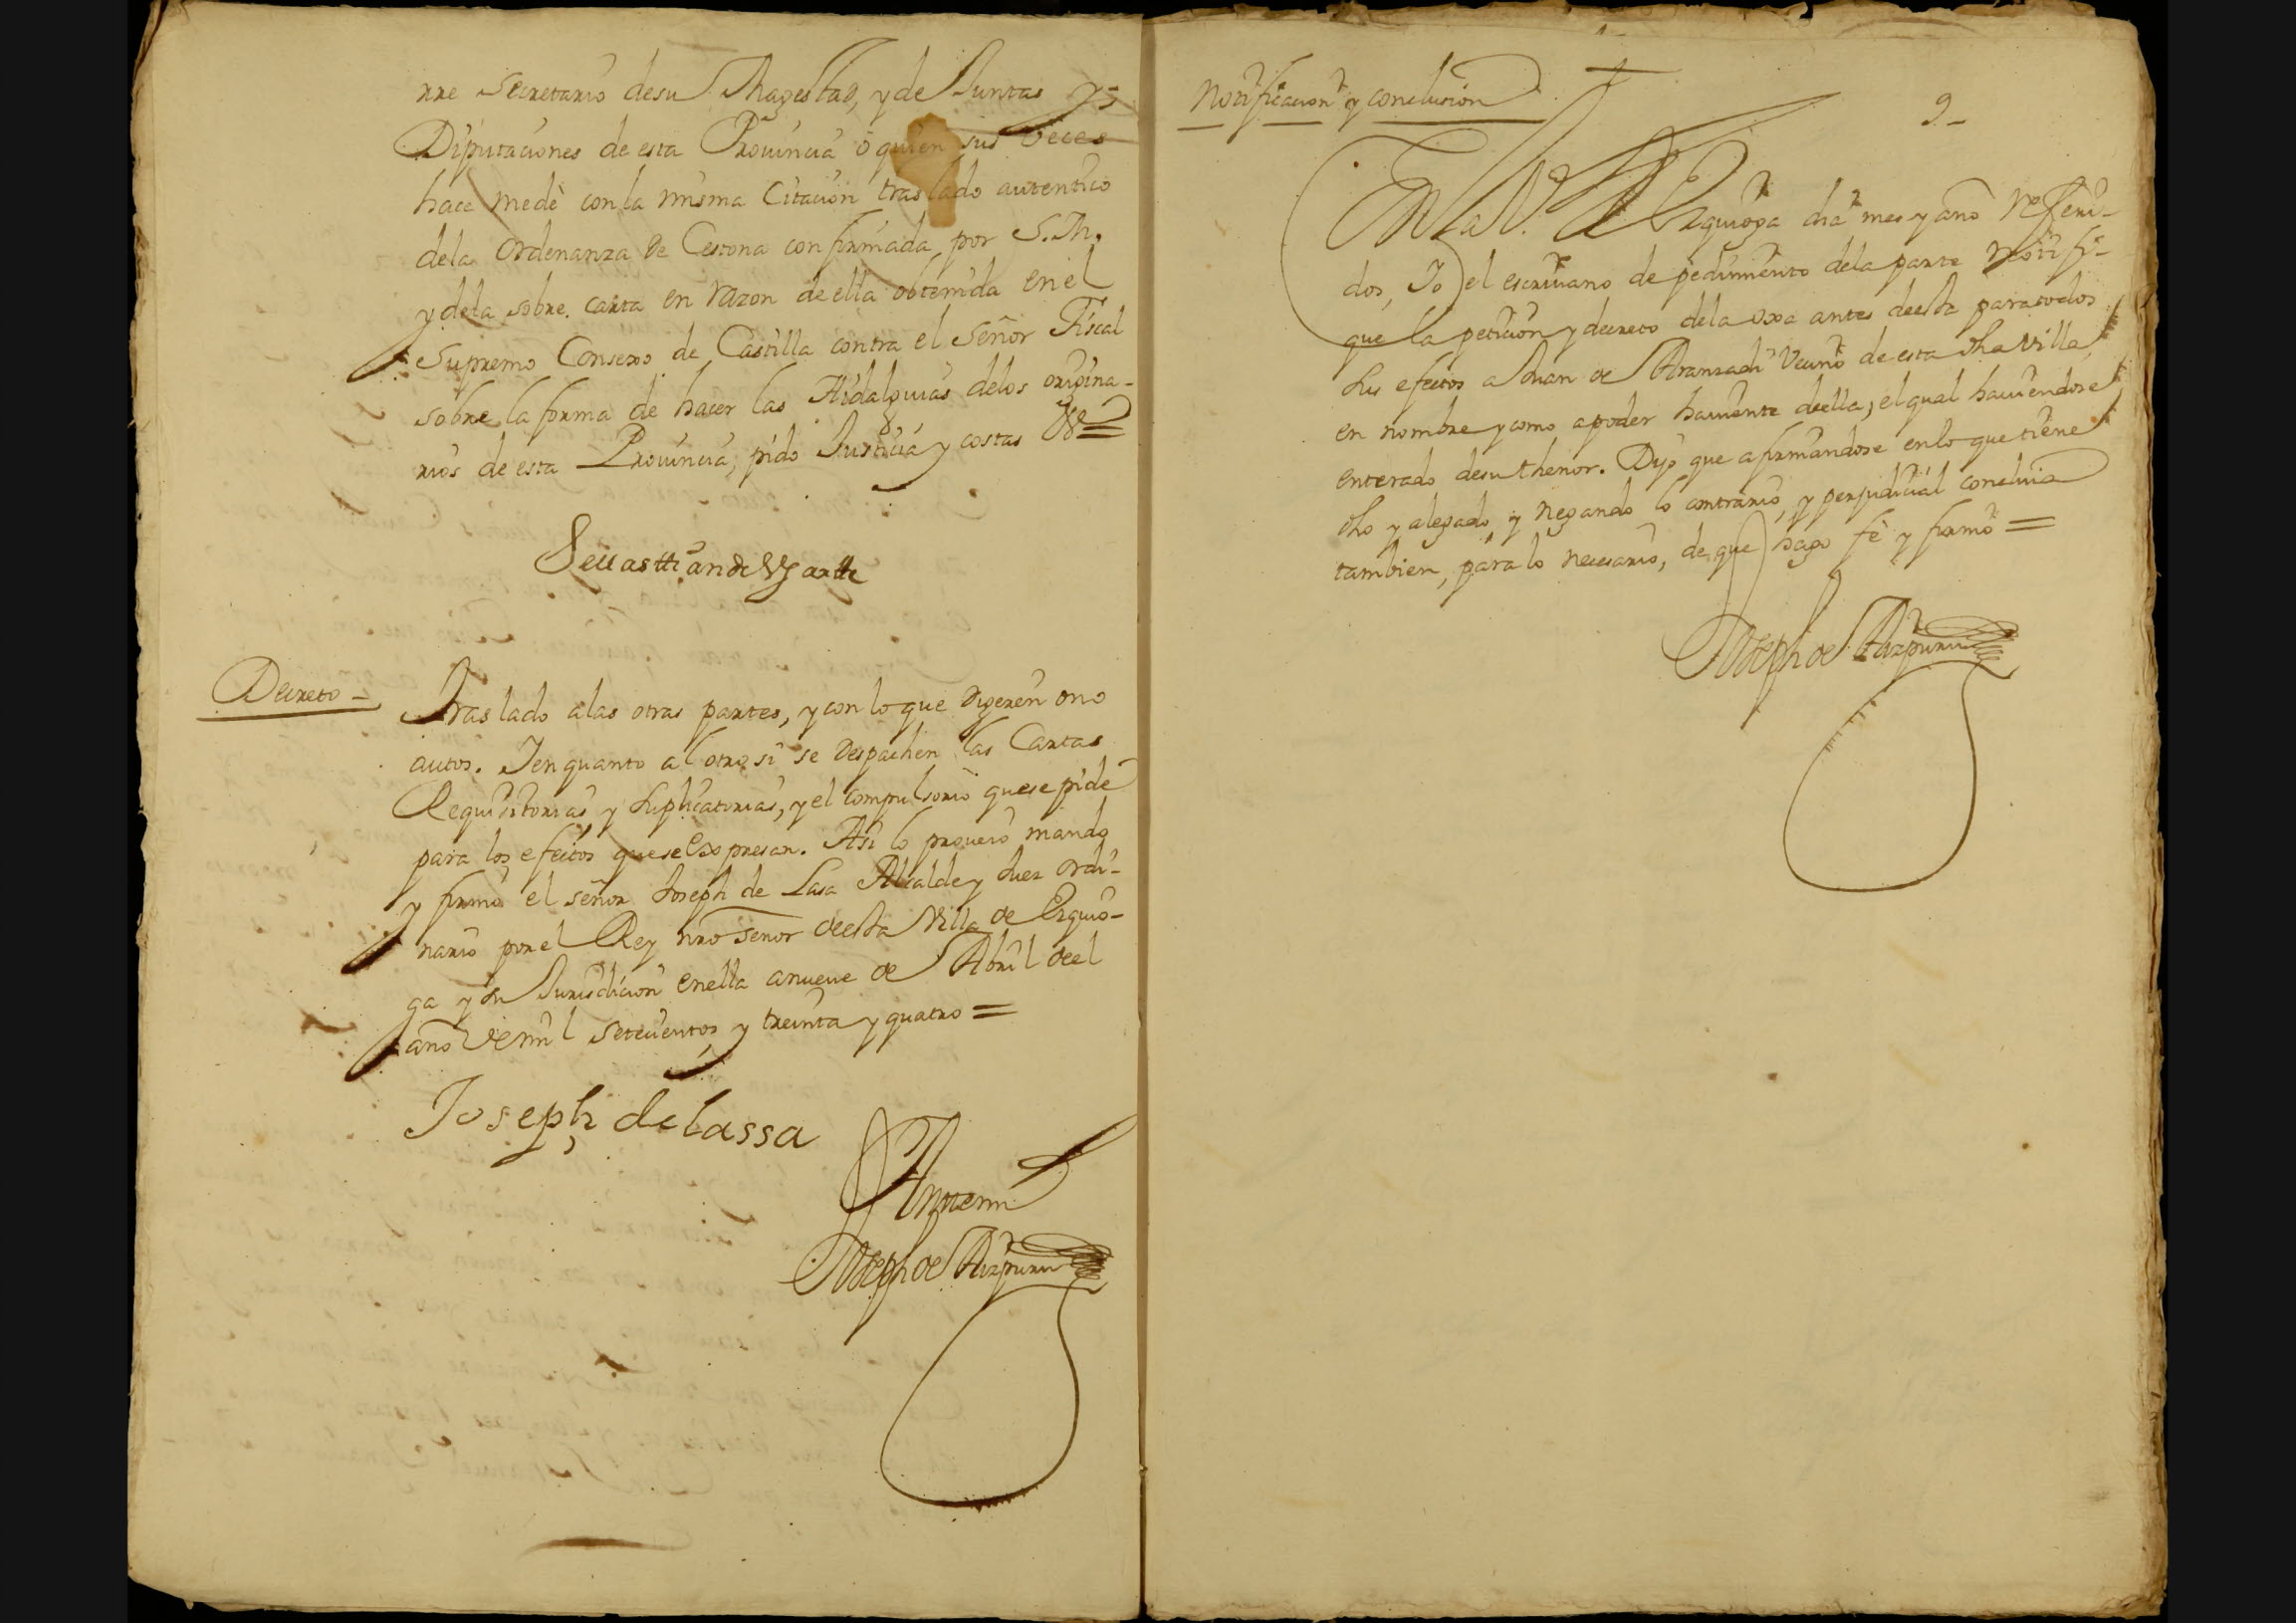 rre Secretario desu Magestad, y de Juntas y=
Diputaciones de esta Prouincia ó quien sus veces
hace medè con la misma Citacion traslado autentico
dela ordenanza de Cestona confirmada por S.M.
y dela sobre carta en razon de ella obtenida en el
Supremo Consexo de Castilla contra el Señor Fiscal
sobre la forma de hacer las Hidalguias delos origina-
rios de esta Prouincia, pido Justicia y costas &=
Seuasttian de Ugartte
Decreto -
Traslado alas otras partes, y con lo que digeren ono
autos. Yenquanto al otro si se despachen las Cartas
Requisitorias y suplicatorias, y el compulsorio quese pide
para los efectos quese expresan. Asi lo proueio mando
y firmo el señor Joseph de Lasa Alcalde y Juez ordi-
nario por el Rey nro señor deesta Villa de Ezquio-
ga y su Jurisdicion enella anueue de Abril deel
año demil setecientos y treinta y quatro =
Joseph de lassa
Antemi
Joseph de Aizpuru
Notificacion y conclusion
9-
En la V.ª de Ezquioga dia mes y año referi-
dos, Yo el escriuano de pedimiento dela parte notifi-
que la peticion y decreto dela oxa antes deesta paratodos
sus efectos a Juan de Aranzadi Vecino de esta dha Villa
en nombre y como apoder hauiente deella, el qual hauiendose
enterado desu thenor. Dijo que afirmandose enlo que tiene
dho y alegado, y negando lo contrario, y perjudicial concluia
tambien, para lo necesario, de que hago fè y firmo =
Joseph de Aizpuru